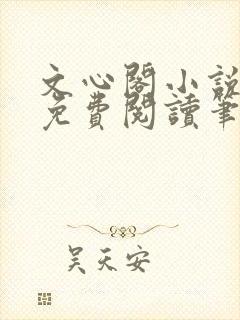 文心閣小說
免費閱讀筆
吴天安